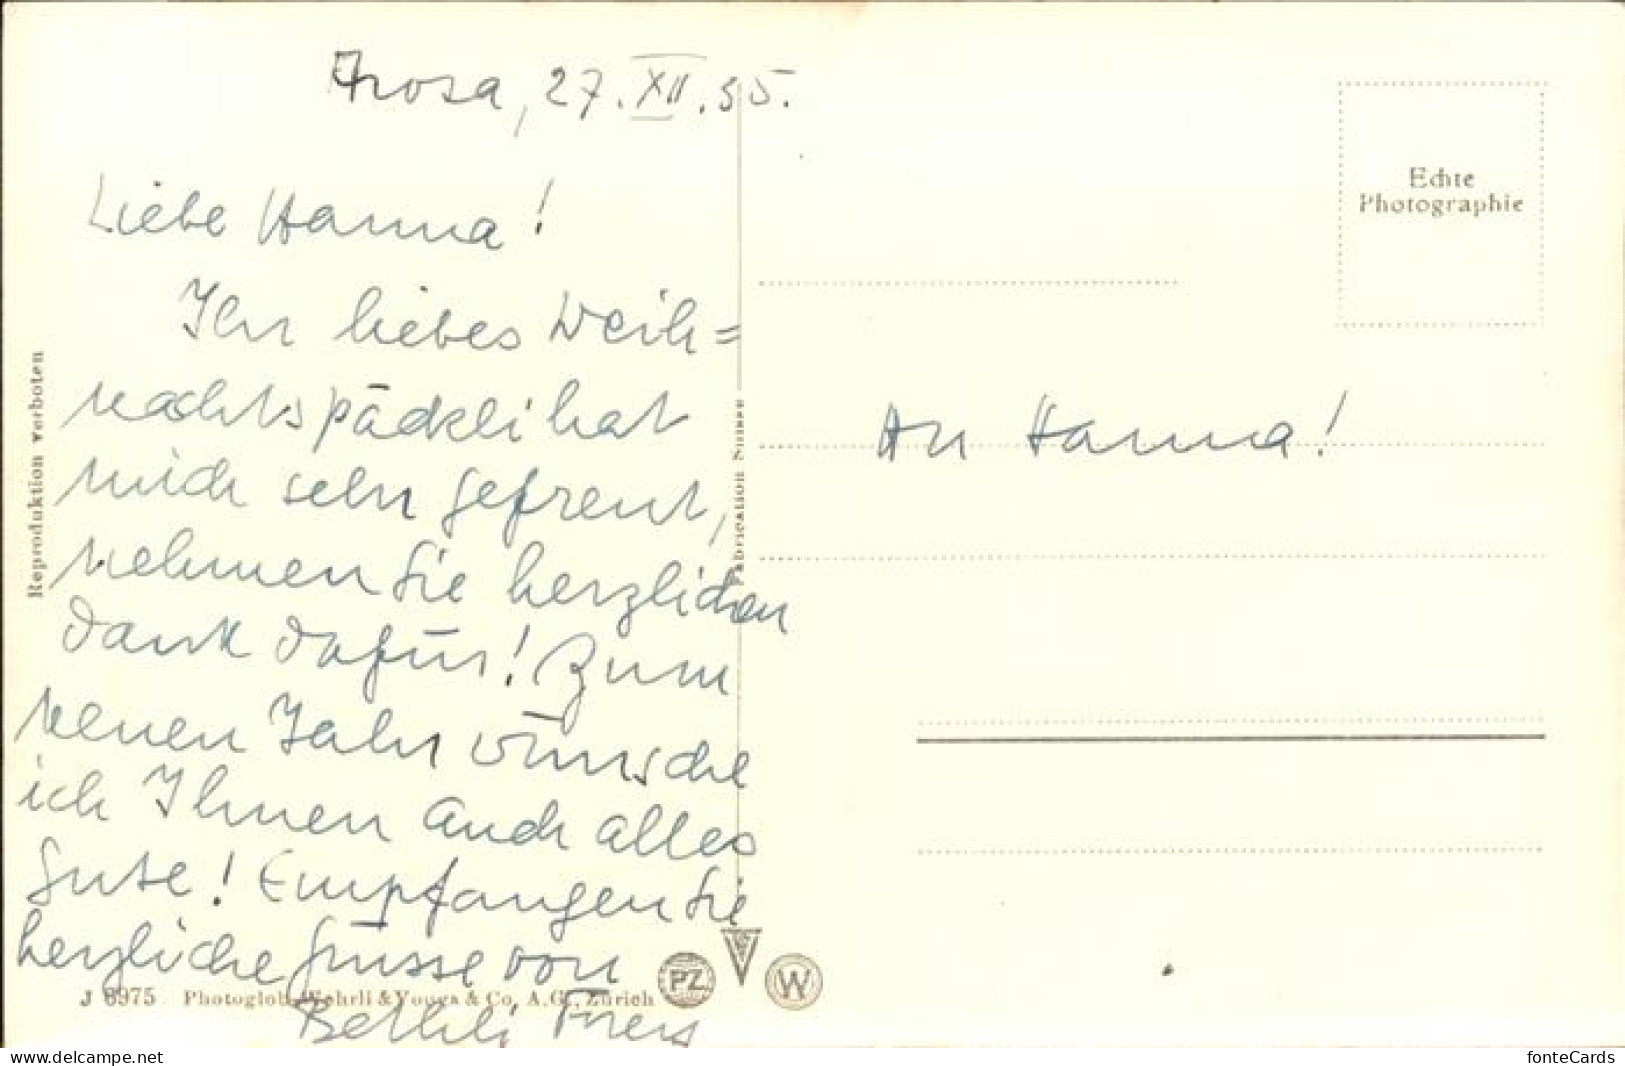 Arosa, 27. XII. 35.
Liebe Hanna!
Ihr liebes Weih=
nachtspäckli hat
mich sehr gefreut,
nehmen Sie herzlichen
Dank dafür! Zum
neuen Jahr wünsche
ich Ihnen auch alles
Gute! Empfangen Sie
herzliche Grüsse von
Bethli
An Hanna!
Echte
Photographie
Reproduktion verboten
Fabrication Suisse
J 6975 Photoglob-Wehrli & Vouga & Co. A.G., Zürich
PZ
W
www.delcampe.net
fonteCards